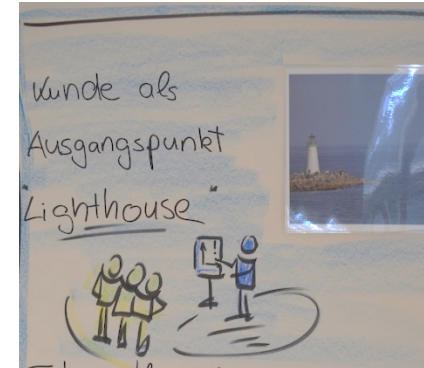 Kunde als
Ausgangspunkt
"Lighthouse"